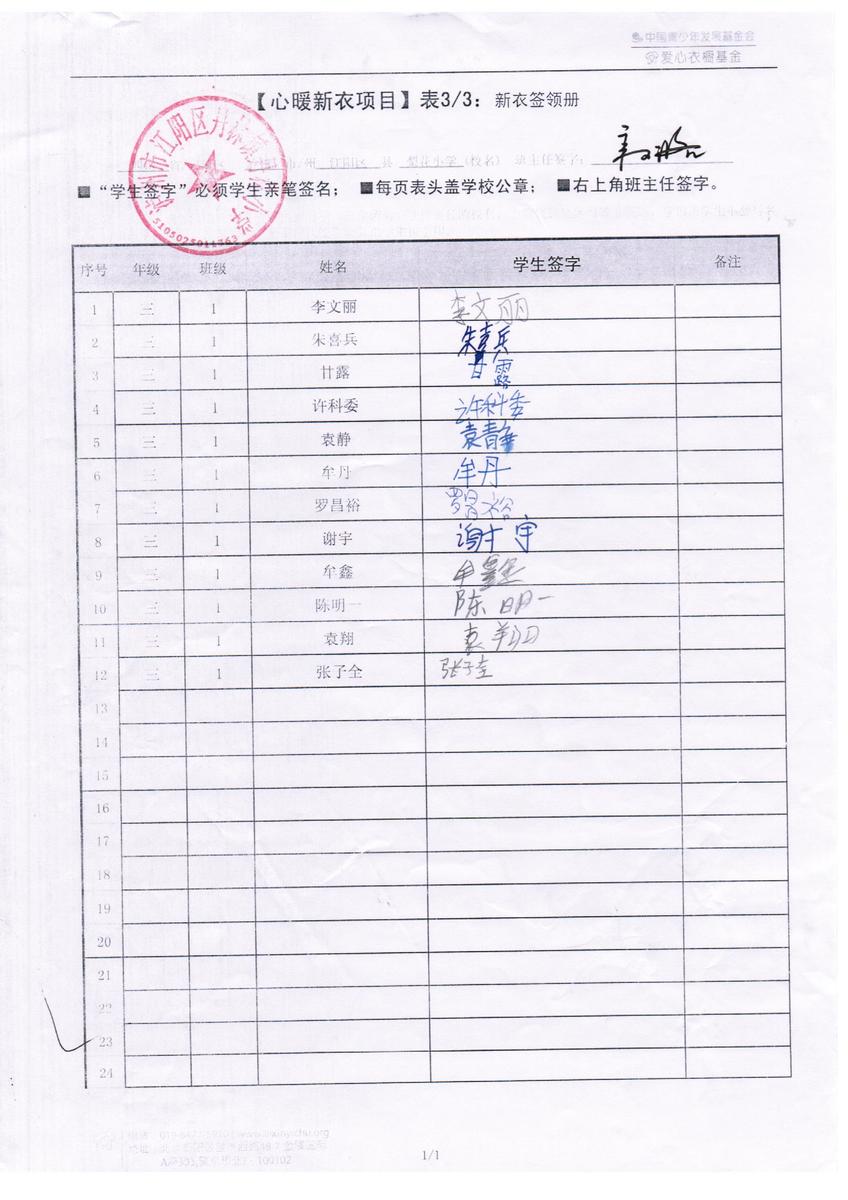 中国青少年发展基金会
爱心衣橱基金
【心暖新衣项目】表3/3：新衣签领册
江阳区 县 梨花小学（校名） 班主任签字：
■“学生签字”必须学生亲笔签名； ■每页表头盖学校公章； ■右上角班主任签字。
5105025011763
序号 年级 班级 姓名 学生签字 备注
1 三 1 李文丽 李文丽
2 三 1 朱喜兵 朱喜兵
3 三 1 甘露 甘露
4 三 1 许科委 许科委
5 三 1 袁静 袁静
6 三 1 牟丹 牟丹
7 三 1 罗昌裕 罗昌裕
8 三 1 谢宇 谢宇
9 三 1 牟鑫 牟鑫
10 三 1 陈明一 陈明一
11 三 1 袁翔 袁翔
12 三 1 张子全 张子全
13
14
15
16
17
18
19
20
21
22
23
24
1/1